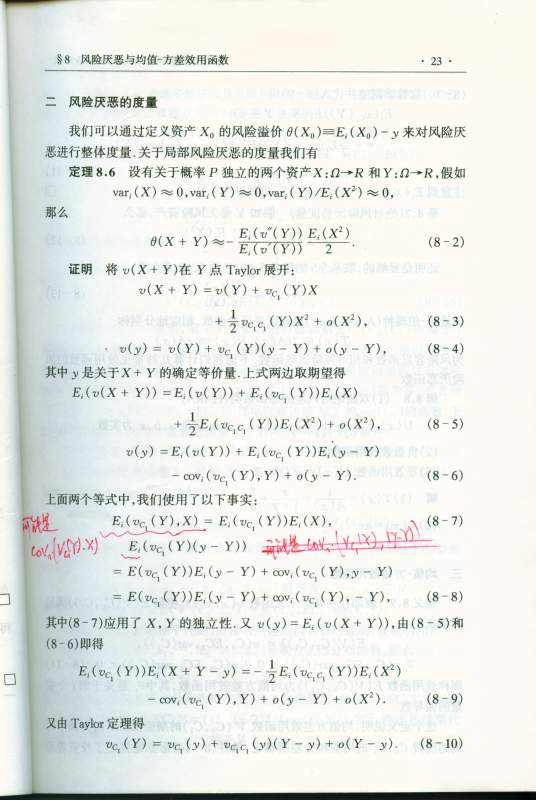 §8 风险厌恶与均值-方差效用函数 · 23 ·
二 风险厌恶的度量
我们可以通过定义资产 X₀ 的风险溢价 θ(X₀)≡Eᵢ(X₀) − y 来对风险厌
恶进行整体度量.关于局部风险厌恶的度量我们有
定理 8.6 设有关于概率 P 独立的两个资产 X:Ω→R 和 Y:Ω→R,假如
varᵢ(X) ≈ 0,varᵢ(Y) ≈ 0,varᵢ(Y)/Eᵢ(X²) ≈ 0,
那么
θ(X + Y) ≈ − Eᵢ(v″(Y))/Eᵢ(v′(Y)) Eᵢ(X²)/2 . (8 - 2)
证明 将 v(X + Y)在 Y 点 Taylor 展开:
v(X + Y) = v(Y) + v_{C₁}(Y)X
+ 1/2 v_{C₁C₁}(Y)X² + o(X²), (8 - 3)
v(y) = v(Y) + v_{C₁}(Y)(y − Y) + o(y − Y), (8 - 4)
其中 y 是关于 X + Y 的确定等价量.上式两边取期望得
Eᵢ(v(X + Y)) = Eᵢ(v(Y)) + Eᵢ(v_{C₁}(Y))Eᵢ(X)
+ 1/2 Eᵢ(v_{C₁C₁}(Y))Eᵢ(X²) + o(X²), (8 - 5)
v(y) = Eᵢ(v(Y)) + Eᵢ(v_{C₁}(Y))Eᵢ(y − Y)
− covᵢ(v_{C₁}(Y),Y) + o(y − Y). (8 - 6)
上面两个等式中,我们使用了以下事实:
可能是
Eᵢ(v_{C₁}(Y),X) = Eᵢ(v_{C₁}(Y))Eᵢ(X), (8 - 7)
Eᵢ(v_{C₁}(Y)(y − Y))
= E(v_{C₁}(Y))Eᵢ(y − Y) + covᵢ(v_{C₁}(Y),y − Y)
= E(v_{C₁}(Y))Eᵢ(y − Y) + covᵢ(v_{C₁}(Y), − Y), (8 - 8)
其中(8 - 7)应用了 X,Y 的独立性.又 v(y) = Eᵢ(v(X + Y)),由(8 - 5)和
(8 - 6)即得
Eᵢ(v_{C₁}(Y))Eᵢ(X + Y − y) = − 1/2 Eᵢ(v_{C₁C₁}(Y))Eᵢ(X²)
− covᵢ(v_{C₁}(Y),Y) + o(y − Y) + o(X²). (8 - 9)
又由 Taylor 定理得
v_{C₁}(Y) = v_{C₁}(y) + v_{C₁C₁}(y)(Y − y) + o(Y − y). (8 - 10)